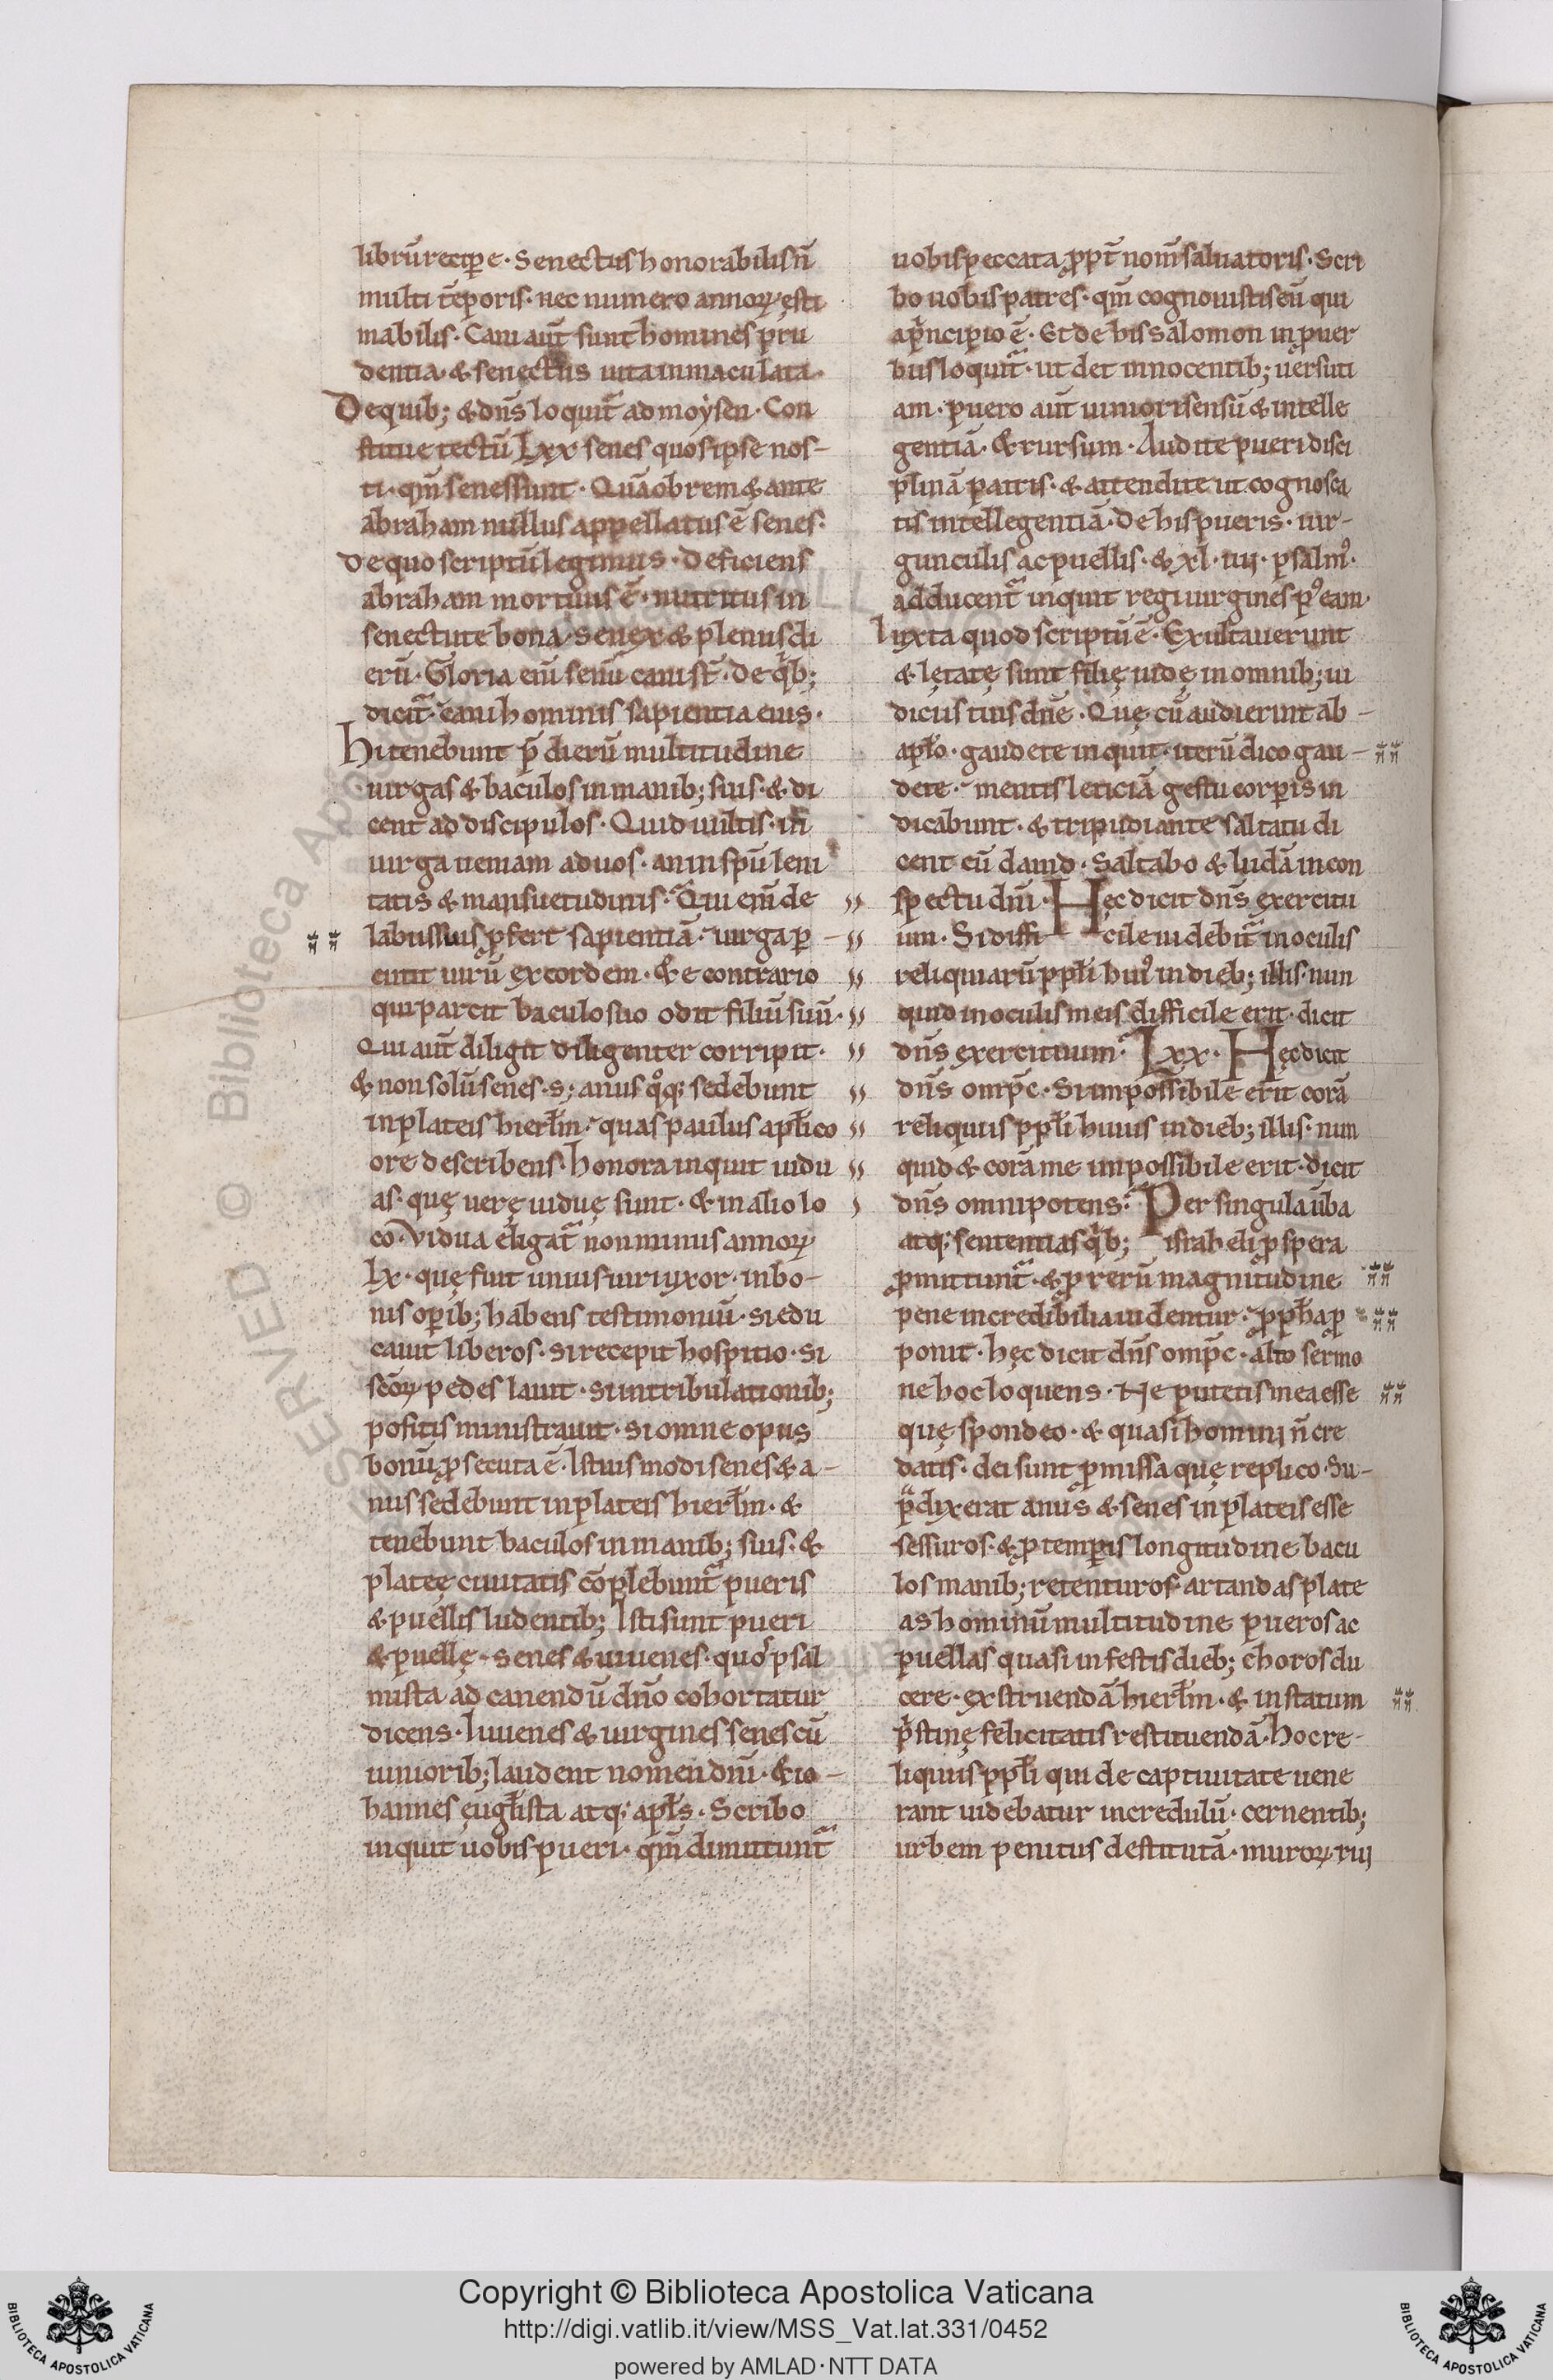 librū recipe · Senectus honorabilis n̄
multi tēporis · nec numero annoꝝ ęsti
mabilis · Cani aut̄ sunt hominis pru
dentia · & senectus uita inmaculata ·
De quib; & dn̄s loquit᷑ ad moẏsen · Con
stitue tectū Lxx senes quos ipse nos-
ti · qm̄ senes sunt · Quāobrem & ante
abraham nullus appellatus ē senes ·
De quo scriptū legimus · Deficiens
abraham mortuus ē · nutritus in
senectute bona · senex & plenus di
erū · Gloria eni senū cani st̄ · de qͥb;
dicit᷑ · cani hominis sapientia eius ·
Hi tenebunt p̄ dierū multitudine
uirgas & baculos in manib; suis · & di
cent ad discipulos · Quid uultis · in
uirga ueniam ad uos · an in spū leni
tatis & mansuetudinis · Qui eni de
labiis suis ꝓfert sapientiā · uirga ꝑ -
cutit uirū excordem · & e contrario
qui parcit baculo suo odit filiū suū ·
Qui aut̄ diligit diligenter corripit ·
& non solū senes · s; anus qͦq; sedebunt
in plateis hierłm · quas paulus apłico
ore describens · honora inquit uidu
as · quę uerę uiduę sunt · & in alio lo
co · vidua eligat᷑ non minus annoꝝ
lx · quę fuit unius uiri uxor · in bo-
nis oꝑib; habens testimoniū · si edu
cauit liberos · si recepit hospitio · si
scōꝝ pedes lauit · si in tribulationib;
positis ministrauit · si omne opus
bonū ꝓsecuta ē · Istiusmodi senes & a-
nus sedebunt in plateis hierłm · &
tenebunt baculos in manib; suis · &
plateę ciuitatis cōplebunt᷑ pueris
& puellis ludentib; Isti sunt pueri
& puellę · senes & iuuenes · quos psal
mista ad canendū dn̄o cohortatur
dicens · Iuuenes & uirgines senes cū
iuniorib; laudent nomen dn̄i · & io-
hannes eugłista atq; apłs · Scribo
inquit uobis pueri · qm̄ dimittunt᷑
uobis peccata ꝓpt̄ nom̄ saluatoris · Scri
bo uobis patres · qm̄ cognouistis eū qui
a pͥncipio ē · Et de his salomon in puer
bus loquit᷑ · ut det innocentib; uersuti
am · puero aut̄ iuniori sensū & intelle
gentiā · & rursum · Audite pueri disci
plinā patris · & attendite ut cognosca
tis intellegentiā · De his pueris · uir-
gunculis ac puellis · & xl · iiij · psalmꝰ ·
adducent᷑ inquit regi uirgines pꝰ eam ·
Iuxta quod scriptū ē · Exultauerunt
& lętatę sunt filię iudę in omnib; iu
diciis tuis dn̄e · Quę cū audierint ab -
apło · gaudete inquit · iterū dico gau -
dete · mentis leticiā gestu corꝑis in
dicabunt · & tripudiante saltatu di
cent cū dauid · Saltabo & ludā in con
spectu dn̄i · Hęc dicit dn̄s exercitu
um · Si diffi cile uidebit᷑ in oculis
reliquiarū ppłi huiꝰ in dieb; illis · nun
quid in oculis meis difficile erit · dicit
dn̄s exercituum · Lxx · Hęc dicit
dn̄s omp̄c · Si impossibile erit corā
reliquiis ppłi huius in dieb; illis · num
quid & corā me impossibile erit · dicit
dn̄s omnipotens · Per singula ūba
atq; sententias qͥb; israheli ꝓspera
ꝓmittunt᷑ · & p rerū magnitudine
pene incredibilia uidentur · ꝓpha ꝓ
ponit · hęc dicit dn̄s omp̄c · alto sermo
ne hoc loquens · Ne putetis mea esse
quę spondeo · & quasi homini n̄ cre
datis · dei sunt ꝓmissa quę replico · Su-
pͣdixerat anus & senes in plateis esse
sessuros · & ꝓ temꝑis longitudine bacu
los manib; retenturos · artandas plate
as hominū multitudine pueros ac
puellas quasi in festis dieb; choros du
cere · exstruendā hierłm · & in statum
pͥstinę felicitatis restituendā · hoc re-
liquiis ppłi qui de captiuitate uene
rant uidebatur incredulū · cernentib;
urbem penitus destitutā · muroꝝ rui
Copyright © Biblioteca Apostolica Vaticana
http://digi.vatlib.it/view/MSS_Vat.lat.331/0452
powered by AMLAD·NTT DATA
BIBLIOTECA APOSTOLICA VATICANA
BIBLIOTECA APOSTOLICA VATICANA